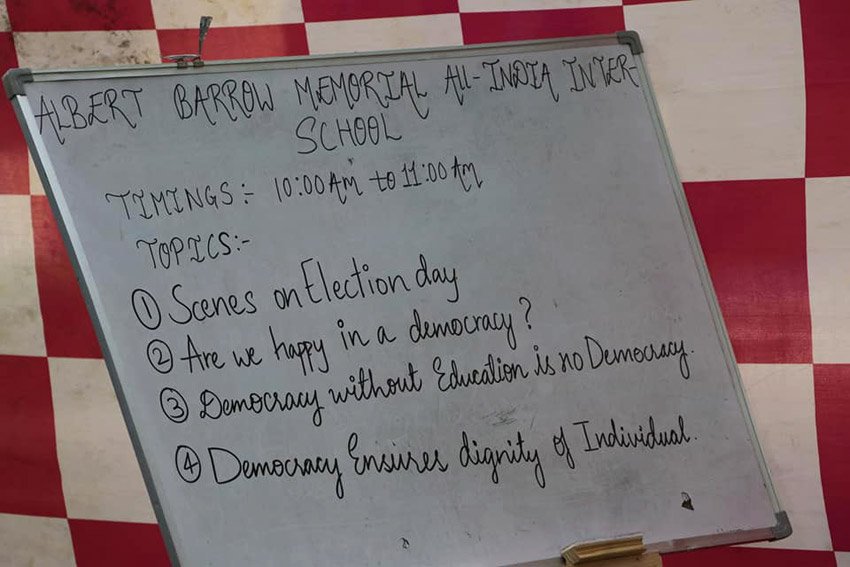 ALBERT BARROW MEMORIAL All-INDIA INTER-
SCHOOL
TIMINGS:- 10:00 AM to 11:00 AM
TOPICS:-
① Scenes on Election day
② Are we happy in a democracy?
③ Democracy without Education is no Democracy.
④ Democracy Ensures dignity of Individual.